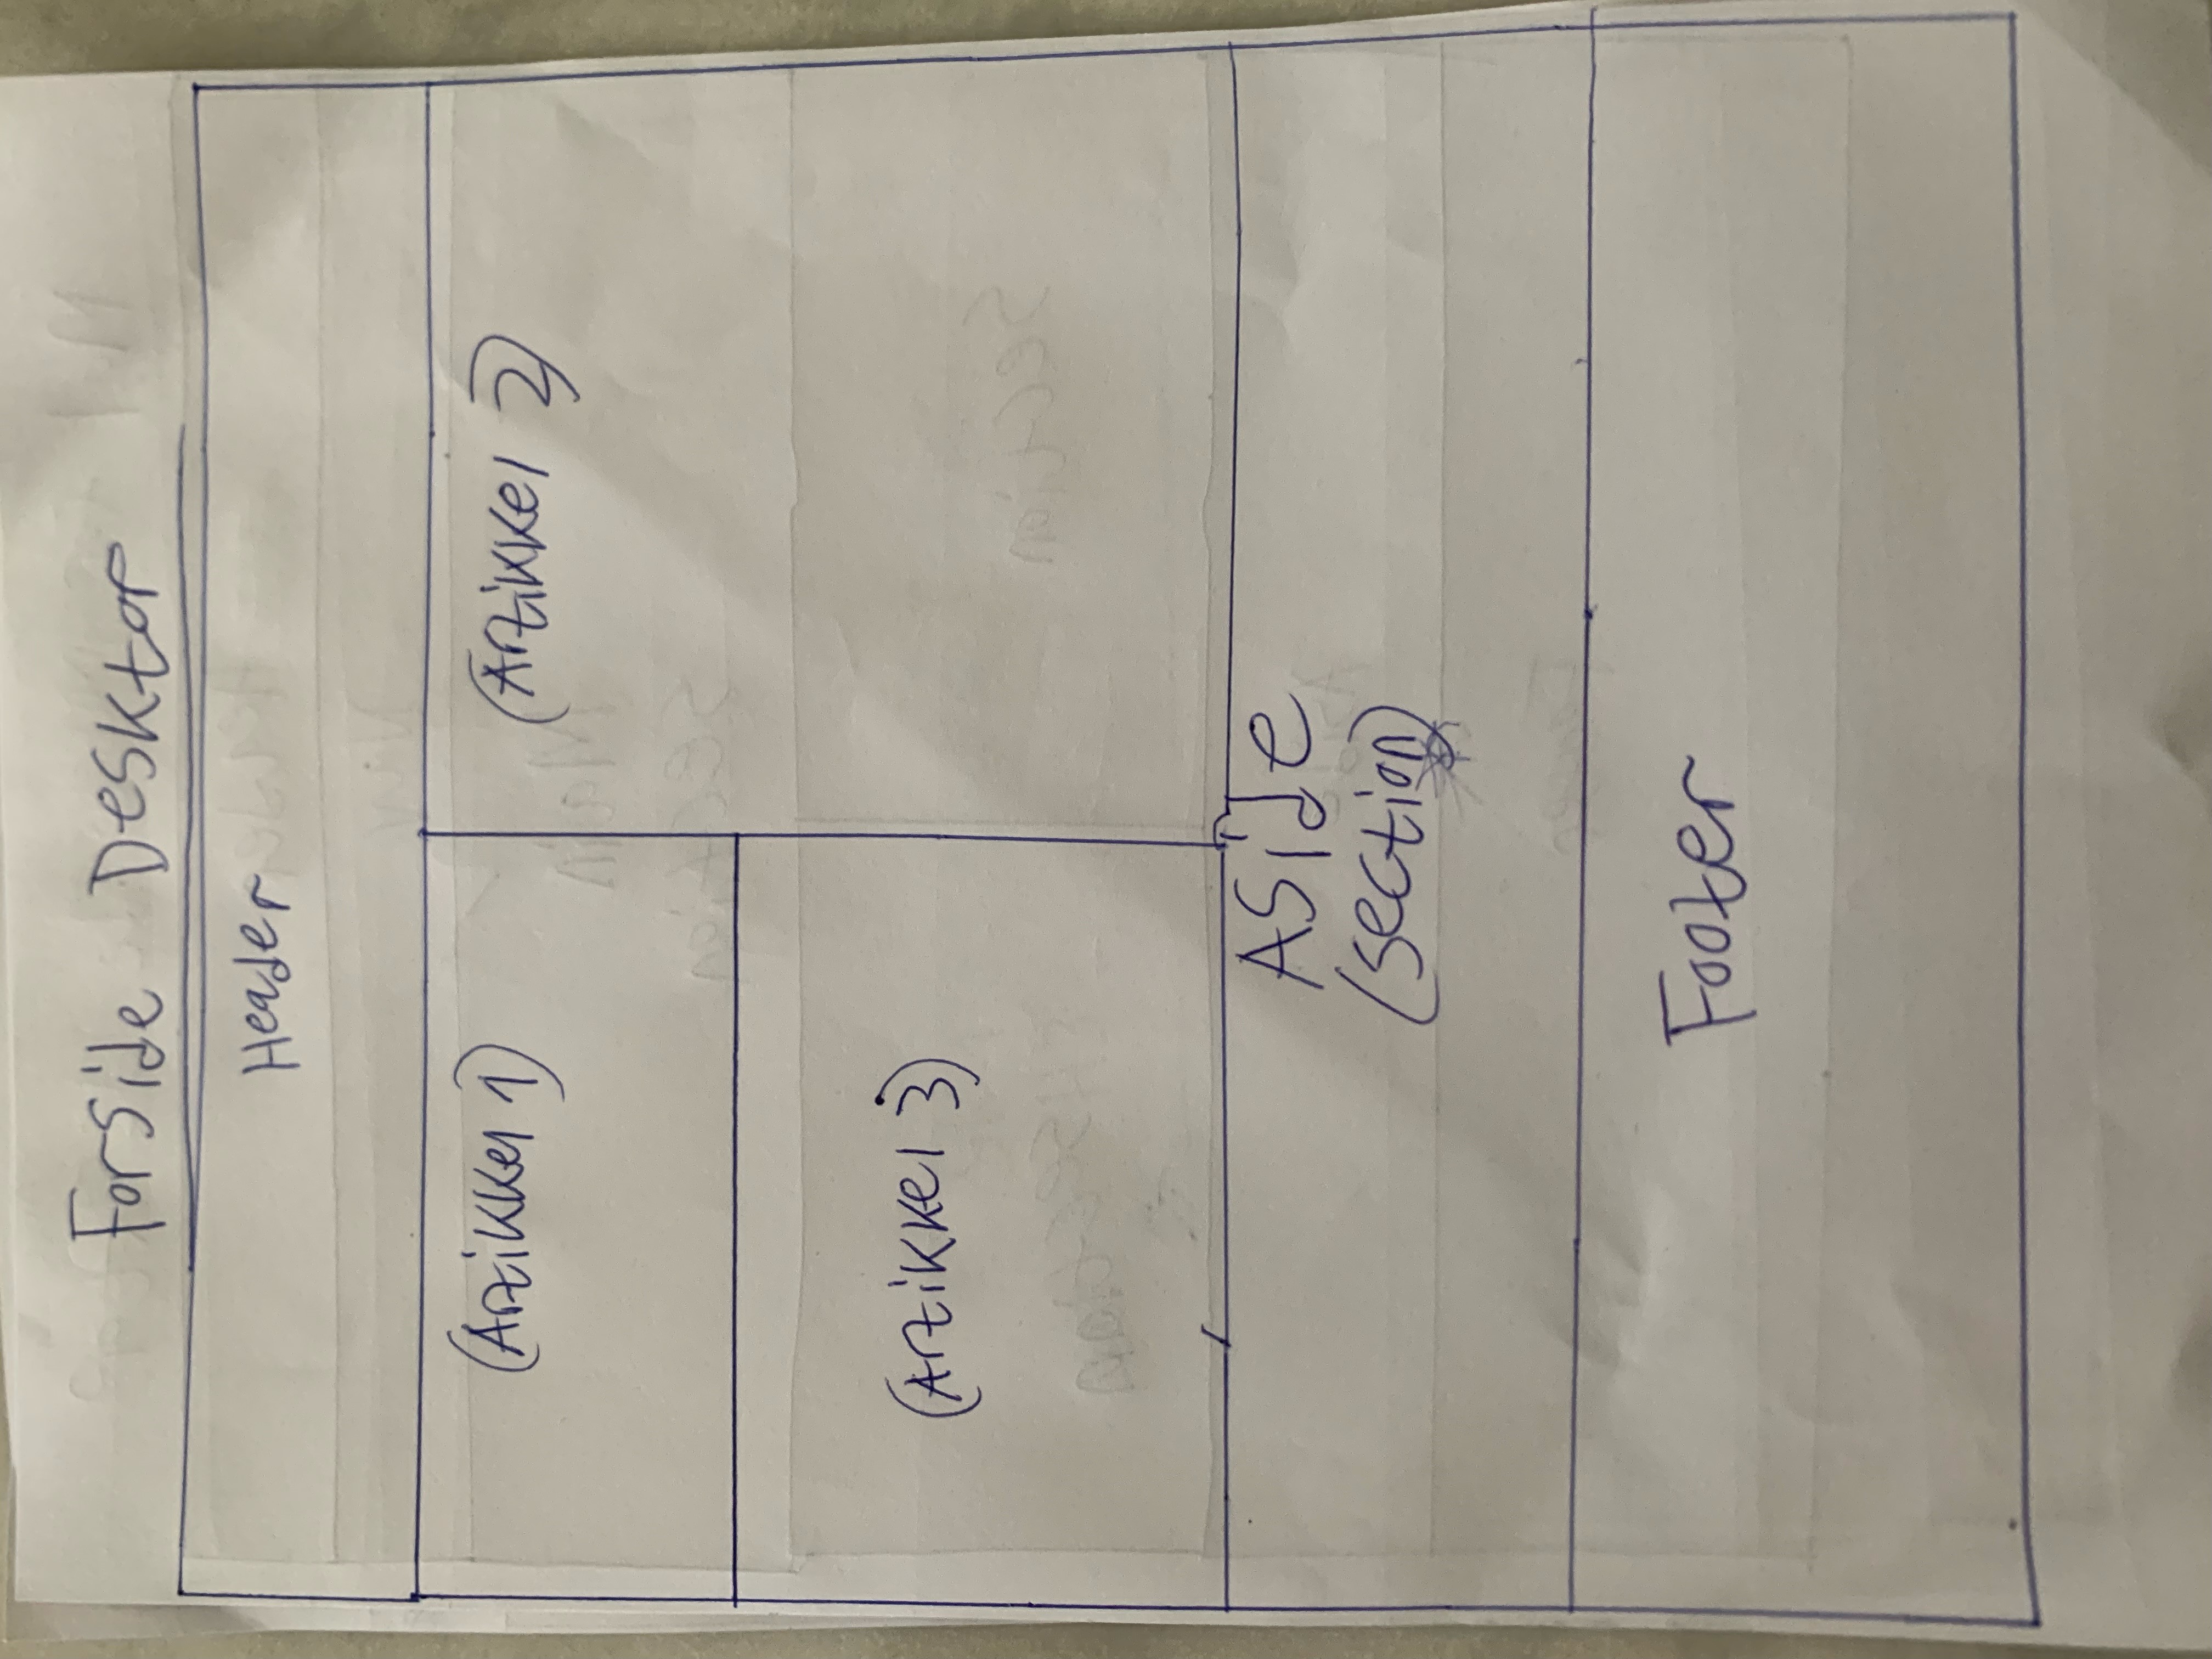 Forside Desktop
Header
(Artikkel 1)
(Artikkel 2)
(Artikkel 3)
Aside
(section)
Footer